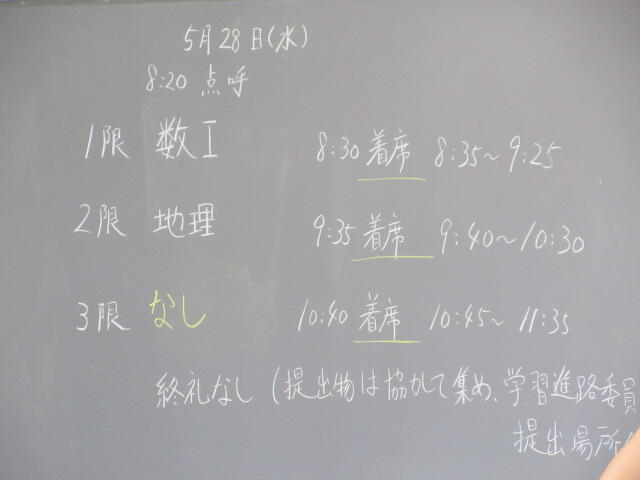 5月28日(水)
8:20 点呼
1限 数I 8:30 着席 8:35~9:25
2限 地理 9:35 着席 9:40~10:30
3限 なし 10:40 着席 10:45~11:35
終礼なし (提出物は協力して集め、学習進路委員
提出場所